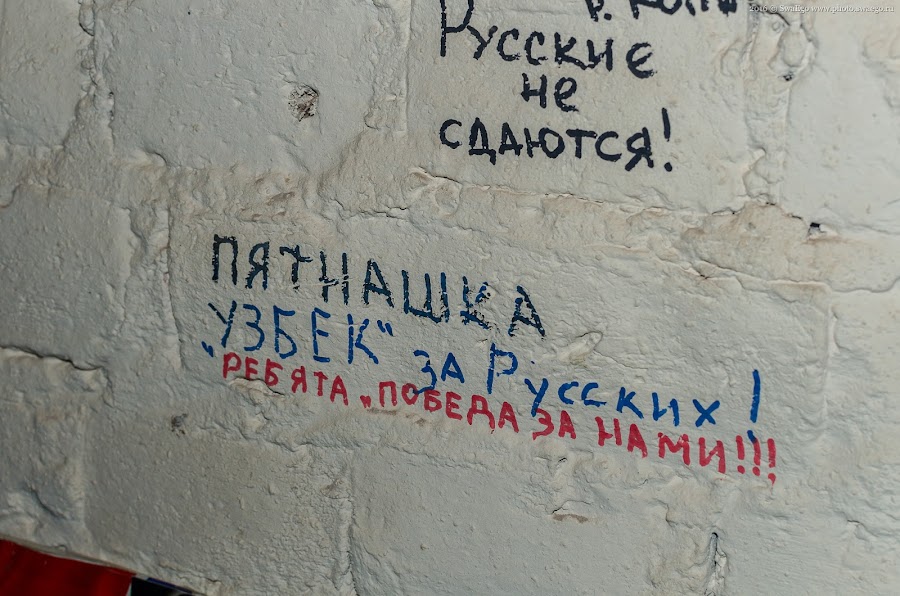 2016 © Swaligo www.photo.swaego.ru
Русские
не
сдаются!
ПЯТНАШКА
"УЗБЕК" за Русских!
РЕБЯТА "ПОБЕДА ЗА НАМИ!!!